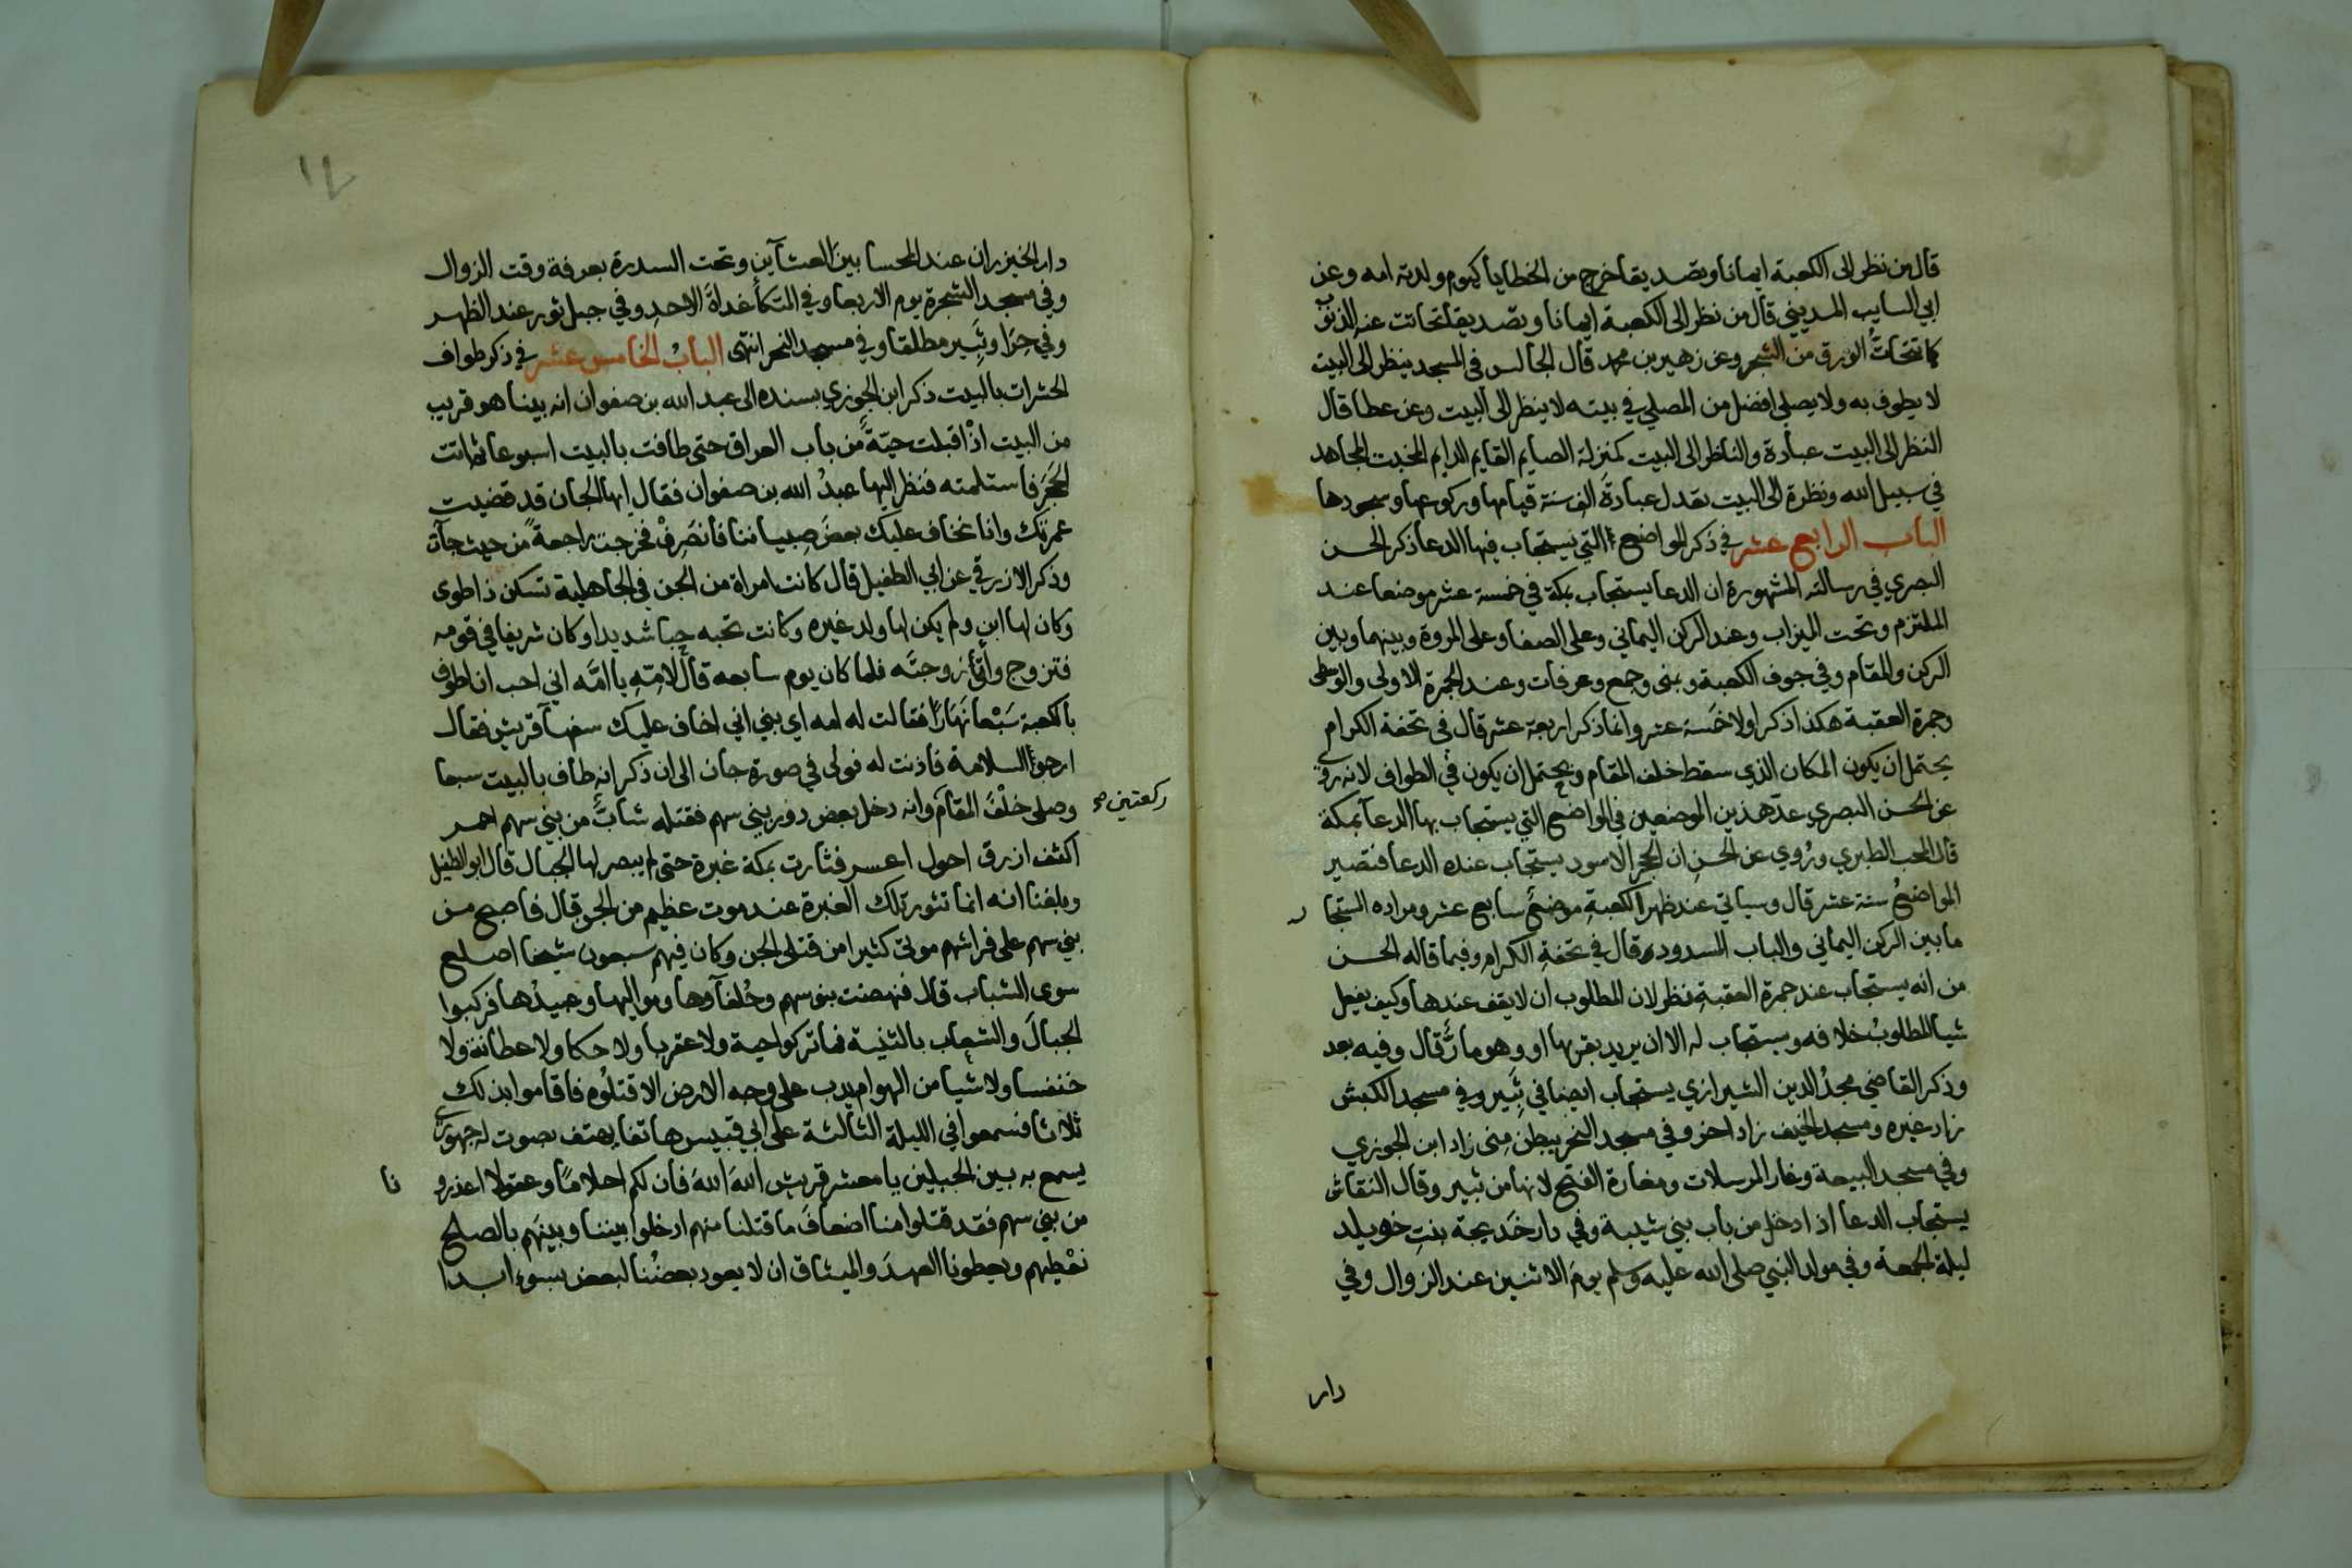 قال من نظر الى الكعبة ايمانا وتصديقا خرج من الخطايا كيوم ولدته امه وعن
ابي السايب المديني قال من نظر الى الكعبة ايمانا وتصديقا تحاتت عنه الذنوب
كما تتحاتُّ الورق من الشجر وعن زهير بن محمد قال الجالس في المسجد ينظر الى البيت
لا يطوف به ولا يصلي افضل من المصلي في بيته لا ينظر الى البيت وعن عطا قال
النظر الى البيت عبادة والناظر الى البيت كمنزلة الصايم القايم الدايم المخبت المجاهد
في سبيل الله ونظرة الى البيت تعدل عبادةَ الف سنة قيامها وركوعها وسجودها
الباب الرابع عشر في ذكر المواضع التي يستجاب فيها الدعا ذكر الحسن
البصري في رسالته المشهورة ان الدعا يستجاب بمكة في خمسة عشر موضعا عند
الملتزم وتحت الميزاب وعند الركن اليماني وعلى الصفا وعلى المروة وبينهما وبين
الركن والمقام وفي جوف الكعبة وبمنى وجمع وعرفات وعند الجمرة الاولى والوسطى
وجمرة العقبة هكذا ذكر اولا خمسة عشر وانما ذكر اربعة عشر قال في تحفة الكرام
يحتمل ان يكون المكان الذي سقط خلف المقام ويحتمل ان يكون في الطواف لانه روي
عن الحسن البصري عدّ هذين الموضعين في المواضع التي يستجاب بها الدعآ بمكة
قال المحب الطبري ورُوي عن الحسن ان الحجر الاسود يستجاب عنده الدعا فتصير
المواضعُ ستة عشر قال وسياتي عند ظهر الكعبةِ موضعٌ سابع عشر ومراده المستجار
ما بين الركن اليماني والباب المسدود وقال في تحفة الكرام وفيما قاله الحسن
من انه يستجاب عند جمرة العقبةِ نظر لان المطلوب ان لا يقف عندها وكيف يفعل
شيا المطلوبُ خلافه ويستجاب له الا ان يريد بقربها او وهو مارٌّ قال وفيه بعد
وذكر القاضي مجدُ الدين الشيرازي يستجاب ايضا في ثَبِير وفي مسجد الكبش
زاد غيره ومسجد الخيف زاد اخر وفي مسجد النحر ببطن مِنى زاد ابن الجوزي
وفي مسجد البيعة وغار المرسلات ومغارة الفتح لانها من ثبير وقال النقاش
يستجاب الدعا اذا دخل من باب بني شيبة وفي دار خَديجة بنتِ خويلد
ليلة الجمعة وفي مولد النبي صلى الله عليه وسلم يومَ الاثنين عند الزوال وفي
دار
١٢
دار الخيزران عند المحسا بين العشآين وتحت السدرة بعرفة وقت الزوال
وفي مسجد الشجرة يوم الاربعا وفي المتكأ غداةَ الاحدِ وفي جبل ثور عند الظهر
وفي حِرَا وثَبِير مطلقا وفي مسجد النحر انتهى البابُ الخامس عشر في ذكر طواف
الحشرات بالبيت ذكر ابن الجوزي بسنده الى عبد الله بن صفوان انه بينا هو قريب
من البيت اذْ اقبلت حيّةٌ من باب العراق حتى طافت بالبيت اسبوعا ثم اتت
الحَجَر فاستلمته فنظر اليها عبدُ الله بن صفوان فقال ايها الجان قد قضيت
عمرتك وانا نخاف عليك بعضَ صبياننا فانصَرِفْ فخرجت راجعةً من حيث جآت
وذكر الازرقي عن ابي الطفيل قال كانت امراة من الجن في الجاهلية تسكن ذا طوى
وكان لها ابن ولم يكن لها ولد غيره وكانت تحبه حبا شديدا وكان شريفا في قومه
فتزوج وأتَى زوجتَه فلما كان يوم سابعه قال لامّهِ يا امَّه اني احب ان اطوف
بالكعبة سَبْعا نَهَارًا فقالت له امه اي بني اني اخاف عليك سفهآ قريش فقال
ارجو السلامة فاذنت له فولى في صورة جان الى ان ذكر انه طاف بالبيت سبعا
وصلى خلْفَ المقام وانه دخل بعض دور بني سهم فقتله شابٌّ من بني سهم احمر
ركعتين صح
اكثف ازرق احول اعسر فثارت بمكة غبرة حتى لم يبصر لها الجبال قال ابو الطفيل
وبلغنا انه انما تثور تلك الغبرة عند موت عظيم من الجن قال فاصبح من
بني سهم على فراشهم موتى كثيرا من قتلى الجن وكان فيهم سبعون شيخا اصلع
سوى الشباب قال فنهضت بنو سهم وحُلفآوها ومواليها وعبيدُها فركبوا
الجبالَ والشعاب بالثنية فما تركوا حية ولا عقربا ولا حكا ولا عطانة ولا
خنفسا ولا شيا من الهوام يدب على وجه الارض الا قتلُوه فاقاموا بذلك
ثلاثا فسمعوا في الليلة الثالثة على ابي قبيس هاتفا يهتف بصوت له جهوري
يسمع به بين الجبلين يا معشر قريش اللهَ اللهَ فان لكم احلامًا وعقولا اعذرو
نا
من بني سهم فقد قتلوا منا اضعافَ ما قتلنا منهم ادخلوا بيننا وبينَهم بالصلح
نعْطيهم ويعطونا العهدَ والميثاق ان لا يعود بعضُنا لبعض بسوءٍ ابدا